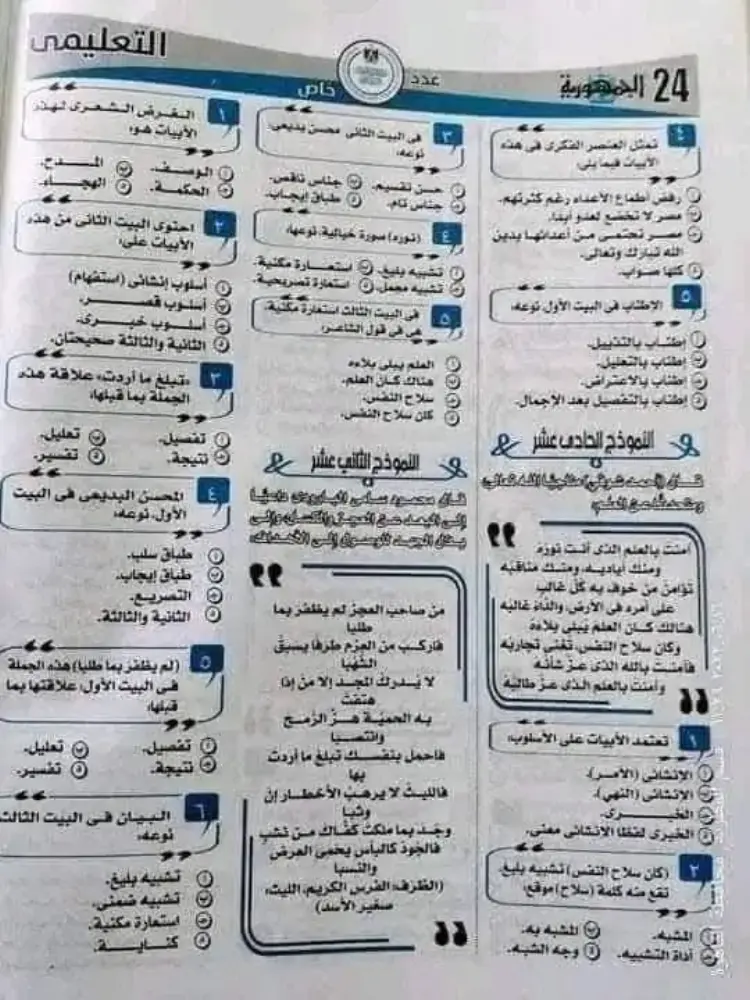 24 الجمهورية
عدد خاص
التعليمى
٤ تمثل العنصر الفكرى فى هذه
الأبيات فيما يلى:
أ رفض أطماع الأعداء رغم كثرتهم.
ب مصر لا تخضع لعدو أبدا.
ج مصر تحتمى من أعدائها بدين
الله تبارك وتعالى.
د كلها صواب.
٥ الإطناب فى البيت الأول نوعه:
أ إطناب بالتذييل.
ب إطناب بالتعليل.
ج إطناب بالاعتراض.
د إطناب بالتفصيل بعد الإجمال.
النموذج الحادى عشر
قال (أحمد شوقى) مناجيًا الله تعالى
ومتحدثًا عن العلم:
آمنت بالعلم الذى أنت نوره
ومنك أياديه، ومنك مناقبه
تؤامن من خوف به كل غالب
على أمره فى الأرض، والداء غالبه
هنالك كان العلم يبلى بلاءه
وكان سلاح النفس، تغنى تجاربه
فآمنت بالله الذى عز شأنه
وآمنت بالعلم الذى عز طالبه
١ تعتمد الأبيات على الأسلوب:
أ الإنشائى (الأمر).
ب الإنشائى (النهى).
ج الخبرى.
د الخبرى لفظا الإنشائى معنى.
٢ (كان سلاح النفس) تشبيه بليغ،
تقع منه كلمة (سلاح) موقع:
أ المشبه. ب المشبه به.
ج أداة التشبيه. د وجه الشبه.
٣ فى البيت الثانى محسن بديعى،
نوعه:
أ حسن تقسيم. ب جناس ناقص.
ج جناس تام. د طباق إيجاب.
٤ (نوره) صورة خيالية، نوعها:
أ تشبيه بليغ. ب استعارة مكنية.
ج تشبيه مجمل. د استعارة تصريحية.
٥ فى البيت الثالث استعارة مكنية،
هى فى قول الشاعر:
أ العلم يبلى بلاءه
ب هنالك كان العلم.
ج سلاح النفس.
د كان سلاح النفس.
النموذج الثانى عشر
قال محمود سامى البارودى داعيًا
إلى البعد عن العجز والكسل، وإلى
بذل الجهد للوصول إلى الأهداف:
من صاحب العجز لم يظفر بما
طلبا
فاركب من العزم طرفا يسبق
الشهبا
لا يدرك المجد إلا من إذا
هتفت
به الحمية هز الرمح
وانتصبا
فاحمل بنفسك تبلغ ما أردت
بها
فالليث لا يرهب الأخطار إن
وثبا
وجد بما ملكت كفاك من نشب
فالجود كالبأس يحمى العرض
والنسبا
(الطرف: الفرس الكريم، الليث:
صغير الأسد)
١ الغرض الشعرى لهذه
الأبيات هو:
أ الوصف. ب المدح.
ج الحكمة. د الهجاء.
٢ احتوى البيت الثانى من هذه
الأبيات على:
أ أسلوب إنشائى (استفهام)
ب أسلوب قصر.
ج أسلوب خبرى.
د الثانية والثالثة صحيحتان.
٣ «تبلغ ما أردت» علاقة هذه
الجملة بما قبلها:
أ تفصيل. ب تعليل.
ج نتيجة. د تفسير.
٤ المحسن البديعى فى البيت
الأول، نوعه:
أ طباق سلب.
ب طباق إيجاب.
ج التصريع.
د الثانية والثالثة.
٥ (لم يظفر بما طلبا) هذه الجملة
فى البيت الأول: علاقتها بما
قبلها:
أ تفصيل. ب تعليل.
ج نتيجة. د تفسير.
٦ البيان فى البيت الثالث
نوعه:
أ تشبيه بليغ.
ب تشبيه ضمنى.
ج استعارة مكنية.
د كناية.